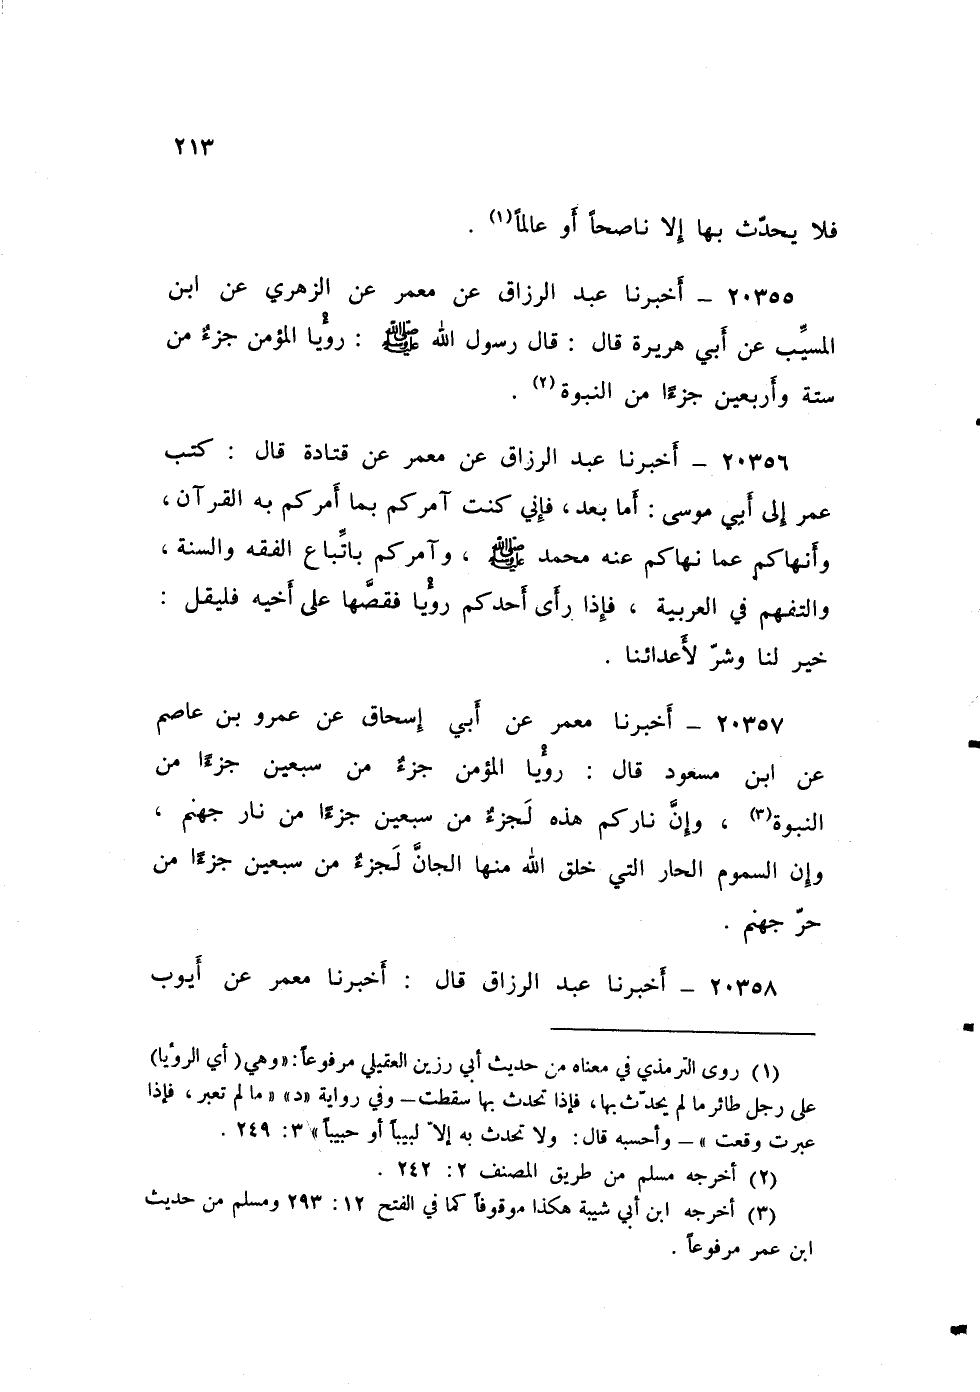 ٢١٣
فلا يحدّث بها إلا ناصحاً أَو عالماً(١) .
٢٠٣٥٥ – أَخبرنا عبد الرزاق عن معمر عن الزهري عن ابن
المسيِّب عن أَبي هريرة قال : قال رسول الله ﷺ : رؤْيا المؤمن جزءٌ من
ستة وأَربعين جزءًا من النبوة(٢) .
٢٠٣٥٦ – أَخبرنا عبد الرزاق عن معمر عن قتادة قال : كتب
عمر إلى أَبي موسى : أَما بعد ، فإني كنت آمركم بما أَمركم به القرآن ،
وأَنهاكم عما نهاكم عنه محمد ﷺ ، وآمركم باتِّباع الفقه والسنة ،
والتفهم في العربية ، فإذا رأَى أَحدكم رؤْيا فقصَّها على أَخيه فليقل :
خير لنا وشرّ لأَعدائنا .
٢٠٣٥٧ – أَخبرنا معمر عن أَبي إسحاق عن عمرو بن عاصم
عن ابن مسعود قال : رؤْيا المؤمن جزءٌ من سبعين جزءًا من
النبوة(٣) ، وإنَّ ناركم هذه لَجزءٌ من سبعين جزءًا من نار جهنم ،
وإن السموم الحار التي خلق الله منها الجانَّ لَجزءٌ من سبعين جزءًا من
حرّ جهنم .
٢٠٣٥٨ – أَخبرنا عبد الرزاق قال : أَخبرنا معمر عن أَيوب
(١) روى الترمذي في معناه من حديث أبي رزين العقيلي مرفوعاً : «وهي ( أي الرؤيا)
على رجل طائر ما لم يحدّث بها، فإذا تحدث بها سقطت – وفي رواية «د» « ما لم تعبر ، فإذا
عبرت وقعت » – وأحسبه قال : ولا تحدث به إلاّ لبيباً أو حبيباً » ٣ : ٢٤٩ .
(٢) أخرجه مسلم من طريق المصنف ٢ : ٢٤٢ .
(٣) أخرجه ابن أبي شيبة هكذا موقوفاً كما في الفتح ١٢ : ٢٩٣ ومسلم من حديث
ابن عمر مرفوعاً .